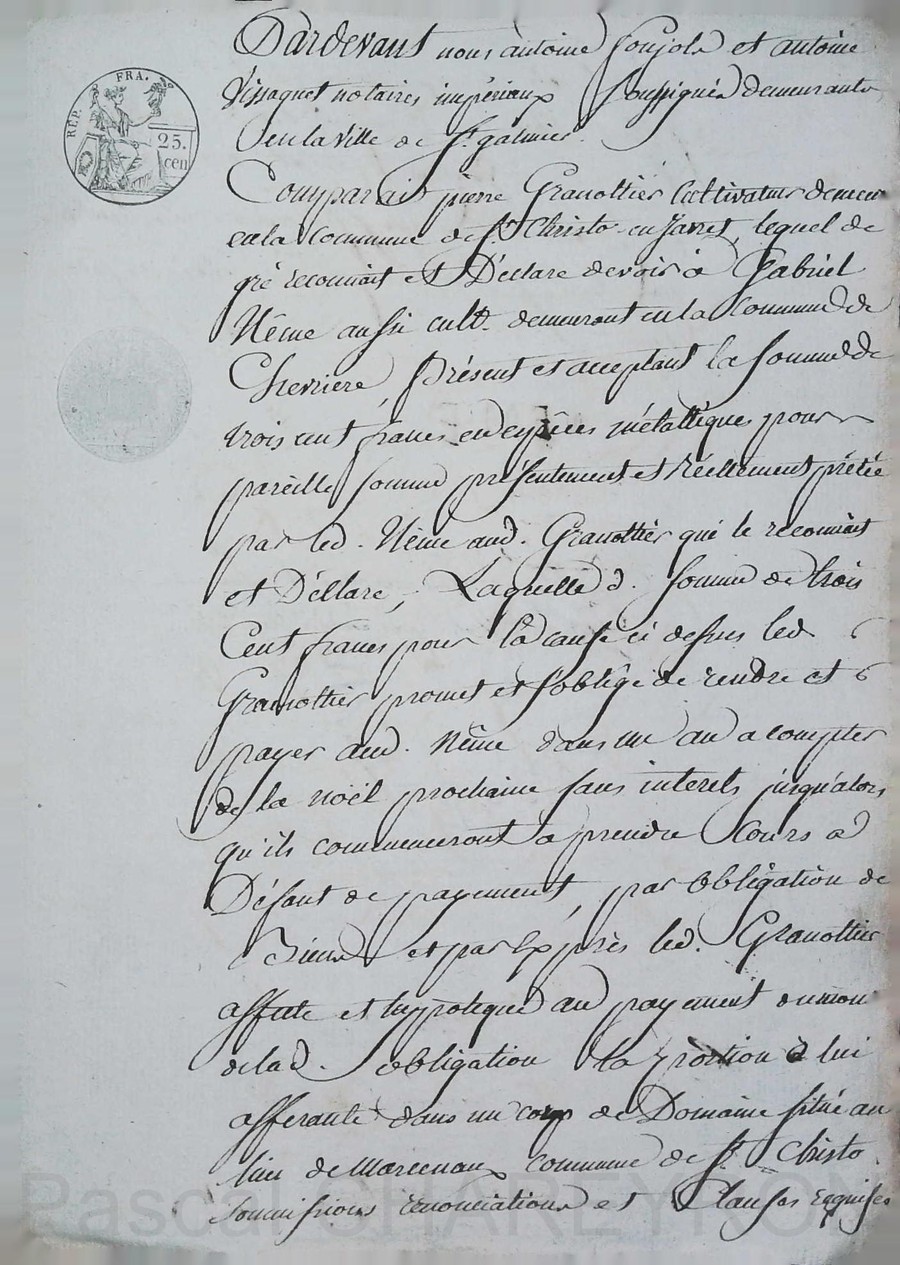 REP. FRA.
25.
cen
Pardevant nous antoine Soujols et antoine
Vissaguet notaires impériaux Soussignés demeurants
en la ville de St. galmier.
Comparait pierre Granottier Cultivateur demeur
en la Commune de St. Christo en Jarret, lequel de
gré reconnait et Déclare devoir à Gabriel
Néme aussi cult. demeurant en la Commune de
Chevriere, présent et acceptant la Somme de
trois cent francs en espèces métalliques pour
pareille somme présentement et réellement prêtée
par led. Néme aud. Granottier qui le reconnait
et Déllare, Laquelle d. somme de trois
Cent francs pour la cause ci dessus led
Granottier promet et s'oblige de rendre et
payer aud. Néme dans un an a compter
de la noël prochaine sans interets jusqu'alors
qu'ils commenceront a prendre Cours a
Défaut de payement, par obligation de
Biens et par Exprès led. Granottier
affecte et hypoteque au payement du mon
de lad. obligation la portion à lui
afferante dans un corp de Domaine situé au
lieu de Marcenaux commune de St. Christo
Soumissions renonciations et Clauses requises
Pascal CHAREYRON